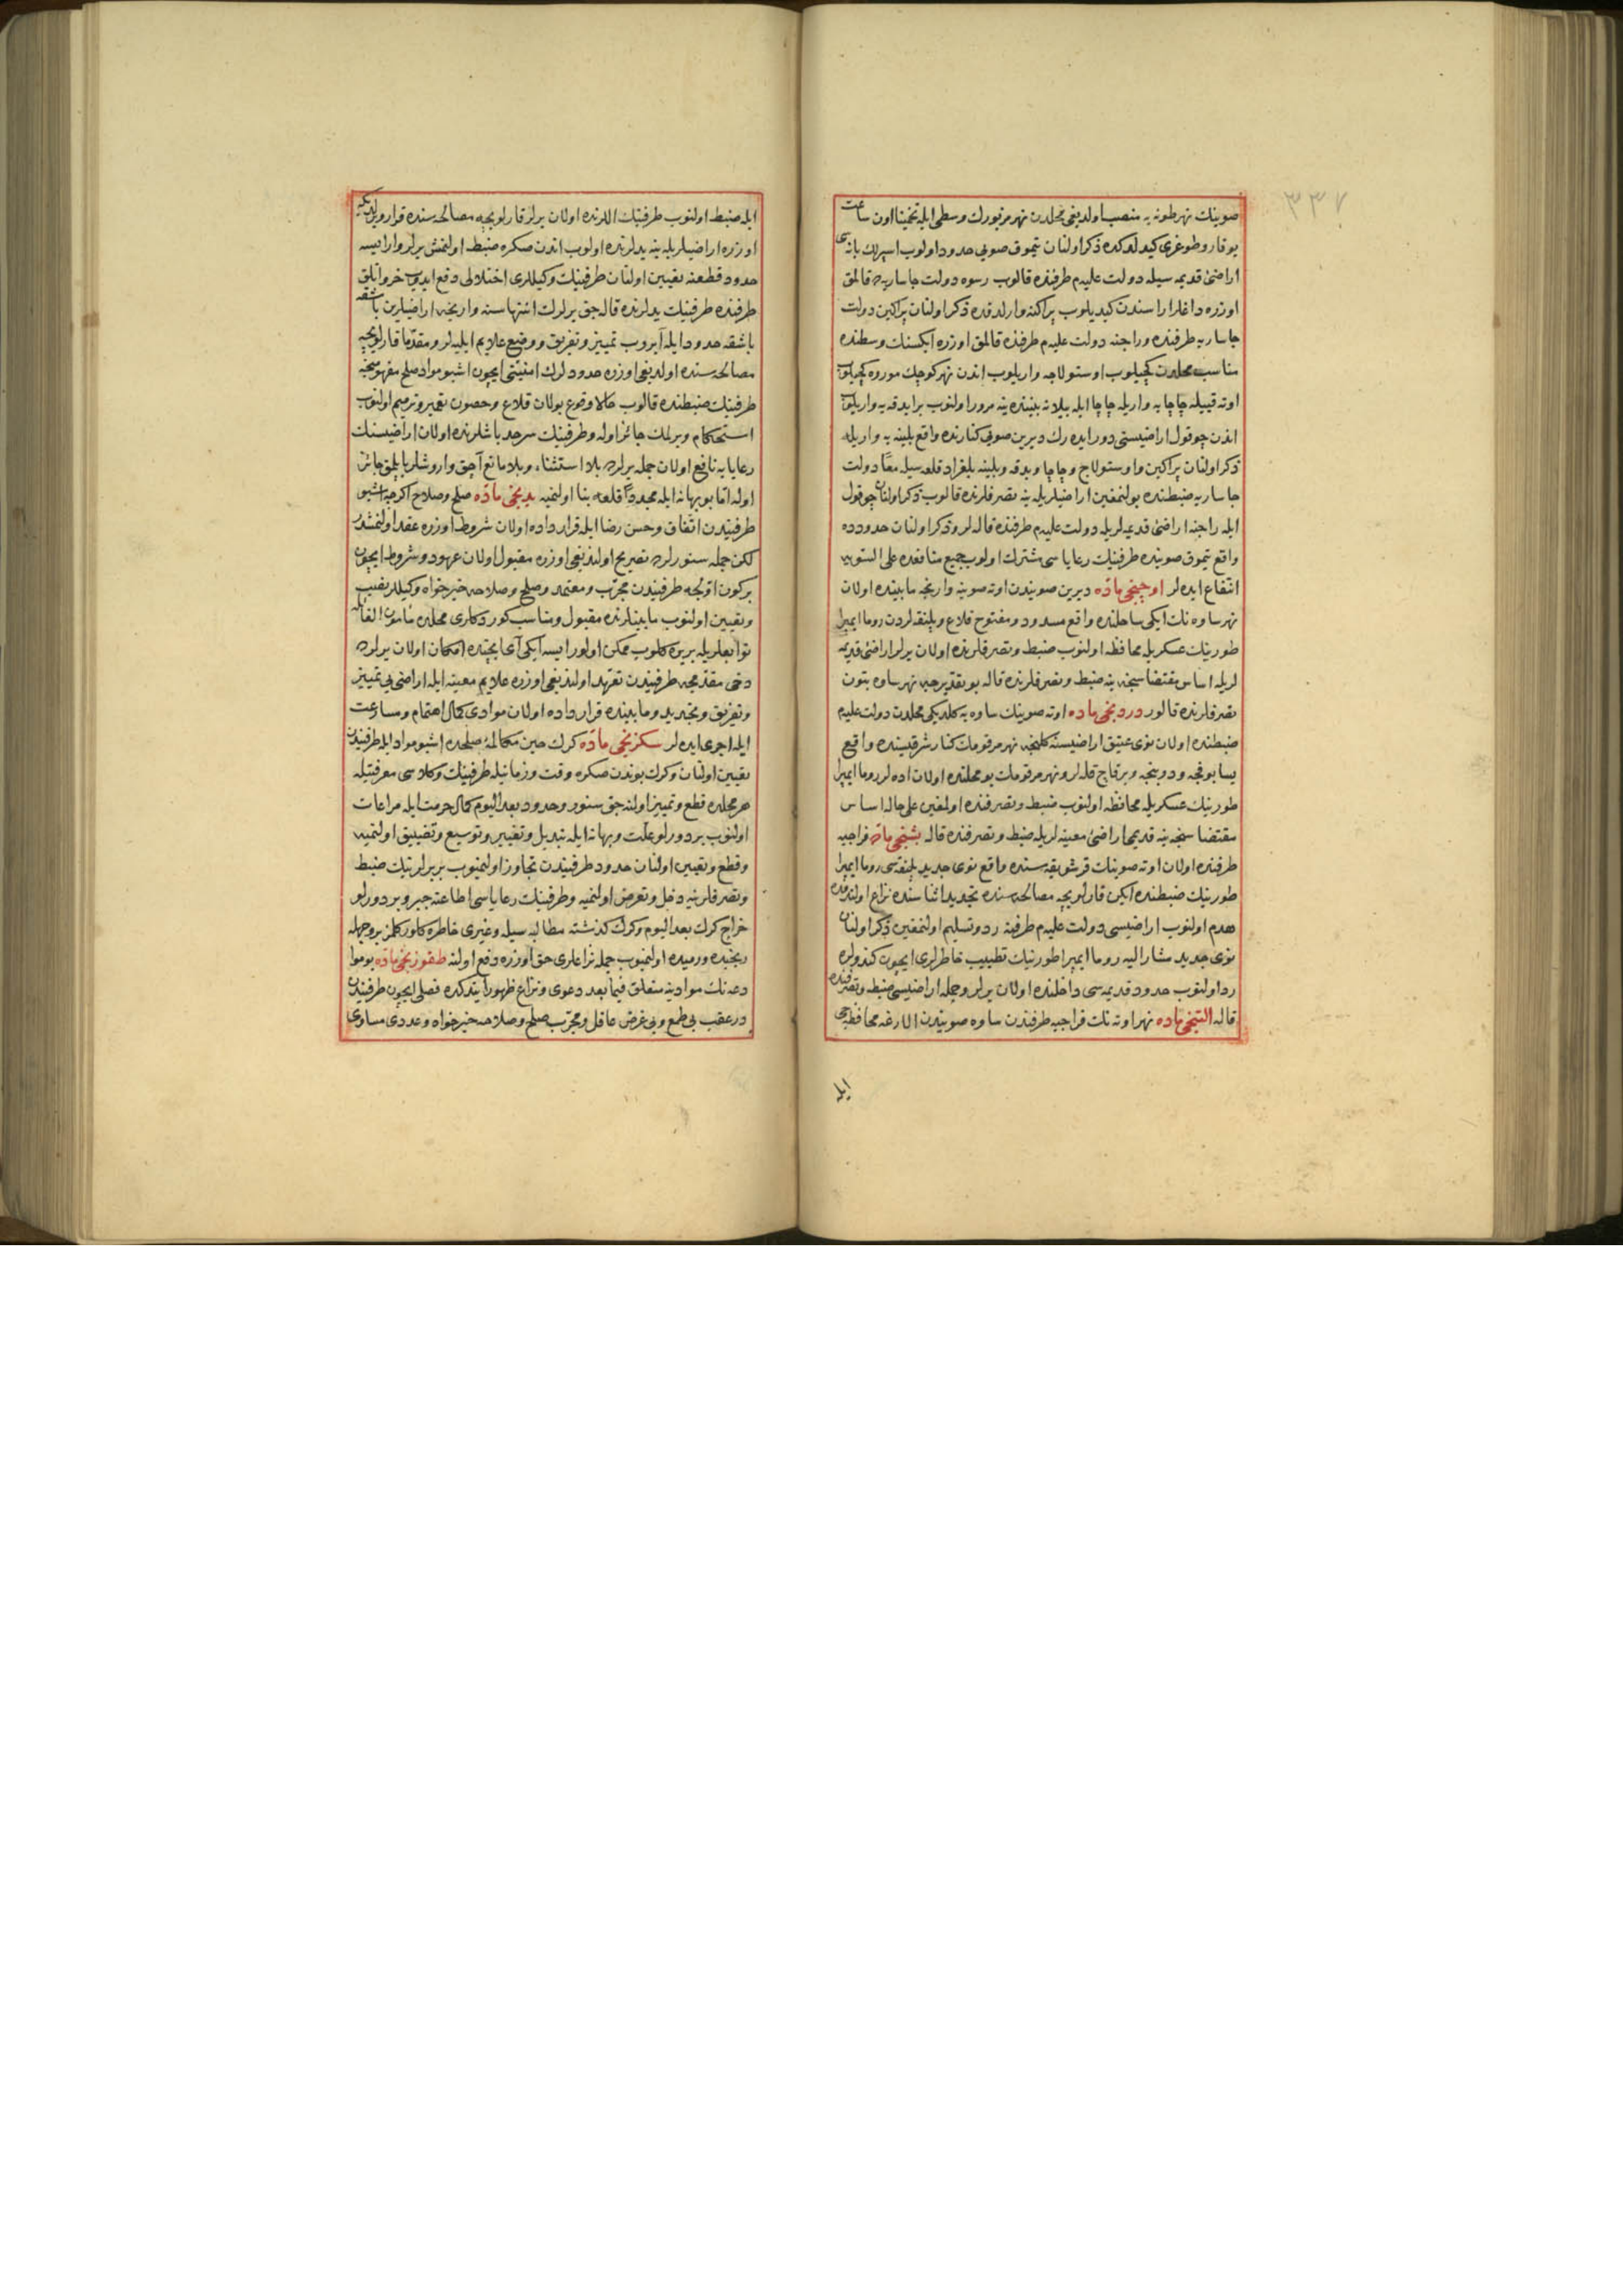 ٣٣٧
صوینك نهر طونه یه منصب اولدیغی محلدن نهر مزبورك وسطی ایله تخمینا اون ساعت
یوقارو طوغری کیدلدکده ذکر اولنان تیموق صویی حدود اولوب اسپرلك بانه سی
اراضیٔ قدیمه سیله دولت علیه م طرفنده قالوب رسوه دولت جاساریه ده قالمق
اوزره داغلر اراسندن کیدیلوب پراکنه وارلدقده ذکر اولنان پراکین دولت
جاساریه طرفنده وراجنه دولت علیه م طرفنده قالمق اوزره ایکسنك وسطنده
مناسب محلدن کچیلوب اوستولاجه واریلوب اندن نهر کوچك موروه کچیلوب
اوته قییسیله چاچایه واریله چاچا ایله بیلانه بیننده ینه مرور اولنوب برایدقه یه واریلوب
اندن چوقول اراضیستی دور ایده رك دیرین صویی کنارنده واقع بلینه یه واریله
ذکر اولنان پراکین واوستولاج وچاچا وبدقه وبلینه بلغراد قلعه سیله معًا دولت
جاساریه ضبطنده بولنمغین اراضیلریله ینه تصرفلرنده قالوب ذکر اولنان چوقول
ایله راجنه اراضیٔ قدیمه لریله دولت علیه م طرفنده قاله لر وذکر اولنان حدودده
واقع تیموق صوینده طرفینك رعایاسی مشترك اولوب جمیع منافعده علی السویه
انتفاع ایده لر اوچنجی ماده دیرین صویندن اونه صوینه وارنجه مابینده اولان
نهر ساوه نك ایکی ساحلنده واقع مسدود ومفتوح قلاع وپلنقه لردن روما ایمپرا
طورینك عسکریله محافظه اولنوب ضبط وتصرفلرنده اولان یرلر اراضیٔ قدیمه
لریله اساس مقتضاسنجه ینه ضبط وتصرفلرنده قاله بو تقدیرجه نهر ساوه بتون
تصرفلرنده قالور دردنجی ماده اونه صوینك ساوه یه کلدیکی محلدن دولت علیه م
ضبطنده اولان نوی عتیق اراضیسنه کلنجه نهر مرقومك کنار شرقیسنده واقع
یسابونجه ودوبنجه وبرقاچ قله لر ونهر مرقومك بو محلنده اولان اده لر روما ایمپرا
طورینك عسکریله محافظه اولنوب ضبط وتصرفنده اولمغین علی حاله اساس
مقتضاسنجه ینه قدیمی اراضیٔ معینه لریله ضبط وتصرفنده قاله بشنجی ماده خراجیه
طرفنده اولان اونه صوینك قرشویقه سنده واقع نوی جدید پلنقه سی روما ایمپرا
طورینك ضبطنده ایکن قارلویچه مصالحه سنده تجدید اثناسنده نزاع اولندقده
هدم اولنوب اراضیسی دولت علیه م طرفنه رد وتسلیم اولنمغین ذکر اولنان
نوی جدید مشار الیه روما ایمپراطورینك تطییب خاطرلری ایچون کندولره
رد اولنوب حدود قدیمه سی داخلنده اولان یرلر وجمله اراضیسی ضبط وتصرفنده
قاله التنجی ماده نهر اونه نك خراجیه طرفندن ساوه صویندن الارغه محافظه سی
ایله
ایله ضبط اولنوب طرفینك اللرنده اولان یرلر قارلویچه مصالحه سنده قرار ویرلدیکی
اوزره اراضیلریله ینه یدلرنده اولوب اندن صکره ضبط اولنمش یرلر وار ایسه
حدود قطعنه تعیین اولنان طرفینك وکیللری اختلالی دفع ایدوب خروانلق
طرفنده طرفینك یدلرنده قاله جق یرلرك انتهاسنه وارنجه اراضیلرین باشقه
باشقه حدود ایله آیروب تمییز وتفریق ووضع علایم ایلیه لر ومقدّما قارلویچه
مصالحه سنده اولدیغی اوزره حدودلرك امنیتی ایچون اشبو مواد صلح مفهومنجه
طرفینك ضبطنده قالوب حالا وقوع بولان قلاع وحصون تعمیر وترمیم اولنوب
استحکام ویرلمك جائز اوله وطرفینك سرحد باشلرنده اولان اراضیسنك
رعایایه نافع اولان جمله یرلرده بلا استثناء وبلا مانع آچق واروشلر یاپلمق جائز
اوله اما بو بهانه ایله مجددًا قلعه بنا اولنمیه یدنجی ماده صلح وصلاح اکرچه اشبو
طرفیندن اتّفاق وحسن رضا ایله قرارداده اولان شروط اوزره عقد اولنمشدر
لکن جمله سنورلرده تصریح اولندیغی اوزره مقبول اولان عهود وشروط ایچون
برکون اوّلجه طرفیندن مجرّب ومعتمد وصلح وصلاحه خیرخواه وکیللر نصب
وتعیین اولنوب مابینلرنده مقبول ومناسب کوردکلری محلده مأمون الغائله
توابعلریله بریره کلوب ممکن اولور ایسه ایکی آی ایچنده امکان اولان یرلرده
دخی مقدمجه طرفیندن تعهد اولندیغی اوزره علایم معینه ایله اراضی یی تمییز
وتفریق وتجدید ومابینده قرارداده اولان موادی کمال اهتمام ومسارعت
ایله اجری ایده لر سکزنجی ماده کرك حین مکالمهٔ صلحده اشبو مواد ایله طرفیندن
تعیین اولنان وکرك بوندن صکره وقت وزمانیله طرفینك وکلاسی معرفتیله
هر محلده قطع وتمییز اولنه جق سنور وحدود بعد الیوم کمال حرمت ایله مراعات
اولنوب بر دورلو علّت وبهانه ایله تبدیل وتغییر وتوسیع وتضییق اولنمیه
وقطع وتعیین اولنان حدود طرفیندن تجاوز اولنمیوب بربرلرینك ضبط
وتصرفلرینه دخل وتعرض اولنمیه وطرفینك رعایاسی اطاعته جبر وبر دورلو
خراج کرك بعد الیوم وکرك کذشته مطالبه سیله وغیری خاطره کلور کلمز بر وجهله
رنجیده ورمیده اولنمیوب جمله نزاعلری حق اوزره دفع اولنه طقوزنجی ماده بو موا
دعه نك موادینه متعلق فیما بعد دعوی ونزاع ظهور ایتدکده فصلی ایچون طرفیندن
درعقب بی طمع وبی غرض عاقل ومجرّب صلح وصلاحه خیرخواه وعددی مساوی